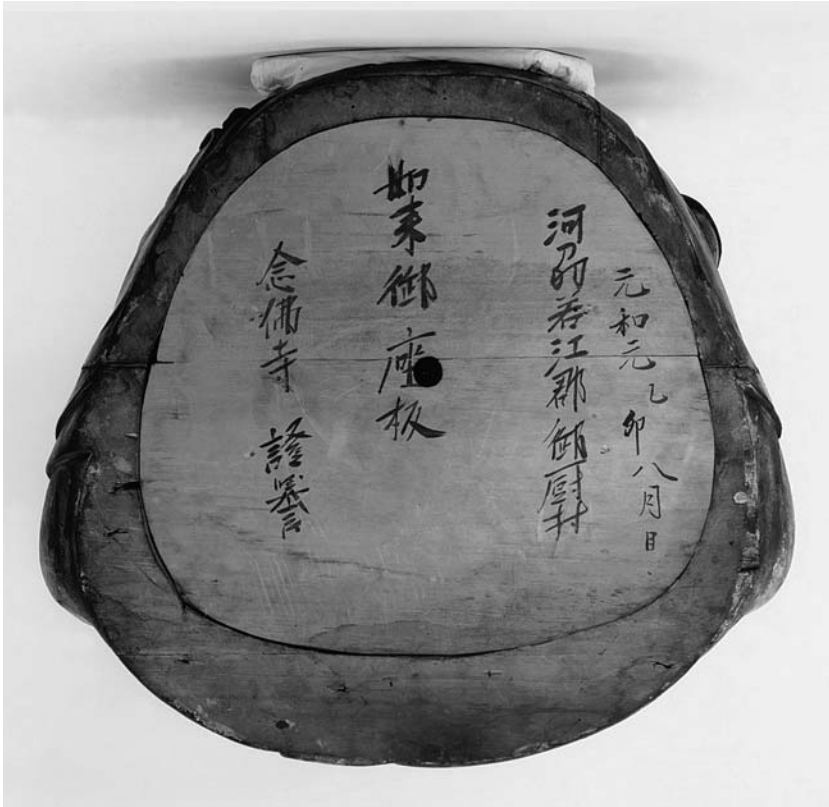 元和元乙卯八月日
河刕若江郡御厨村
如来御座板
念佛寺 證誉